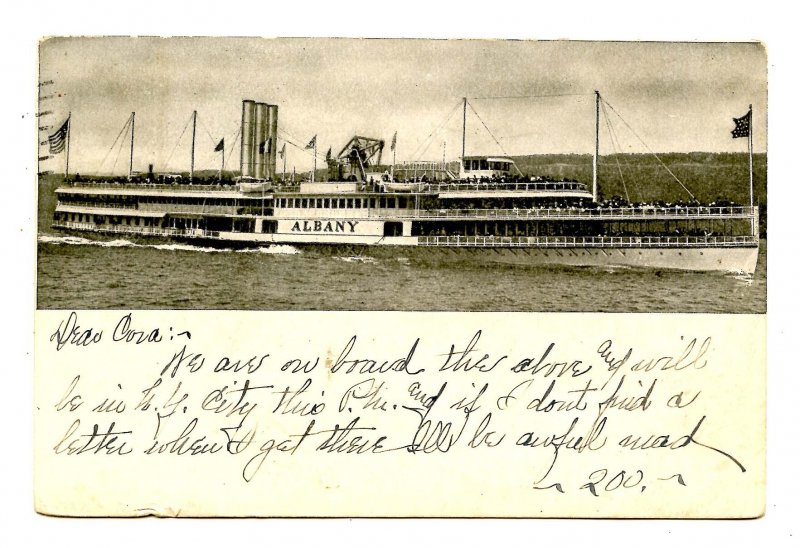 ALBANY
Dear Cora:~
We are on board the above and will
be in N.Y. City this P.M. and if I dont find a
letter when I get there Ill be awful mad
~ 200. ~